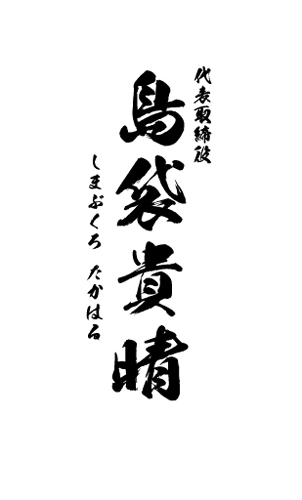 代表取締役
島袋貴晴
しまぶくろ たかはる